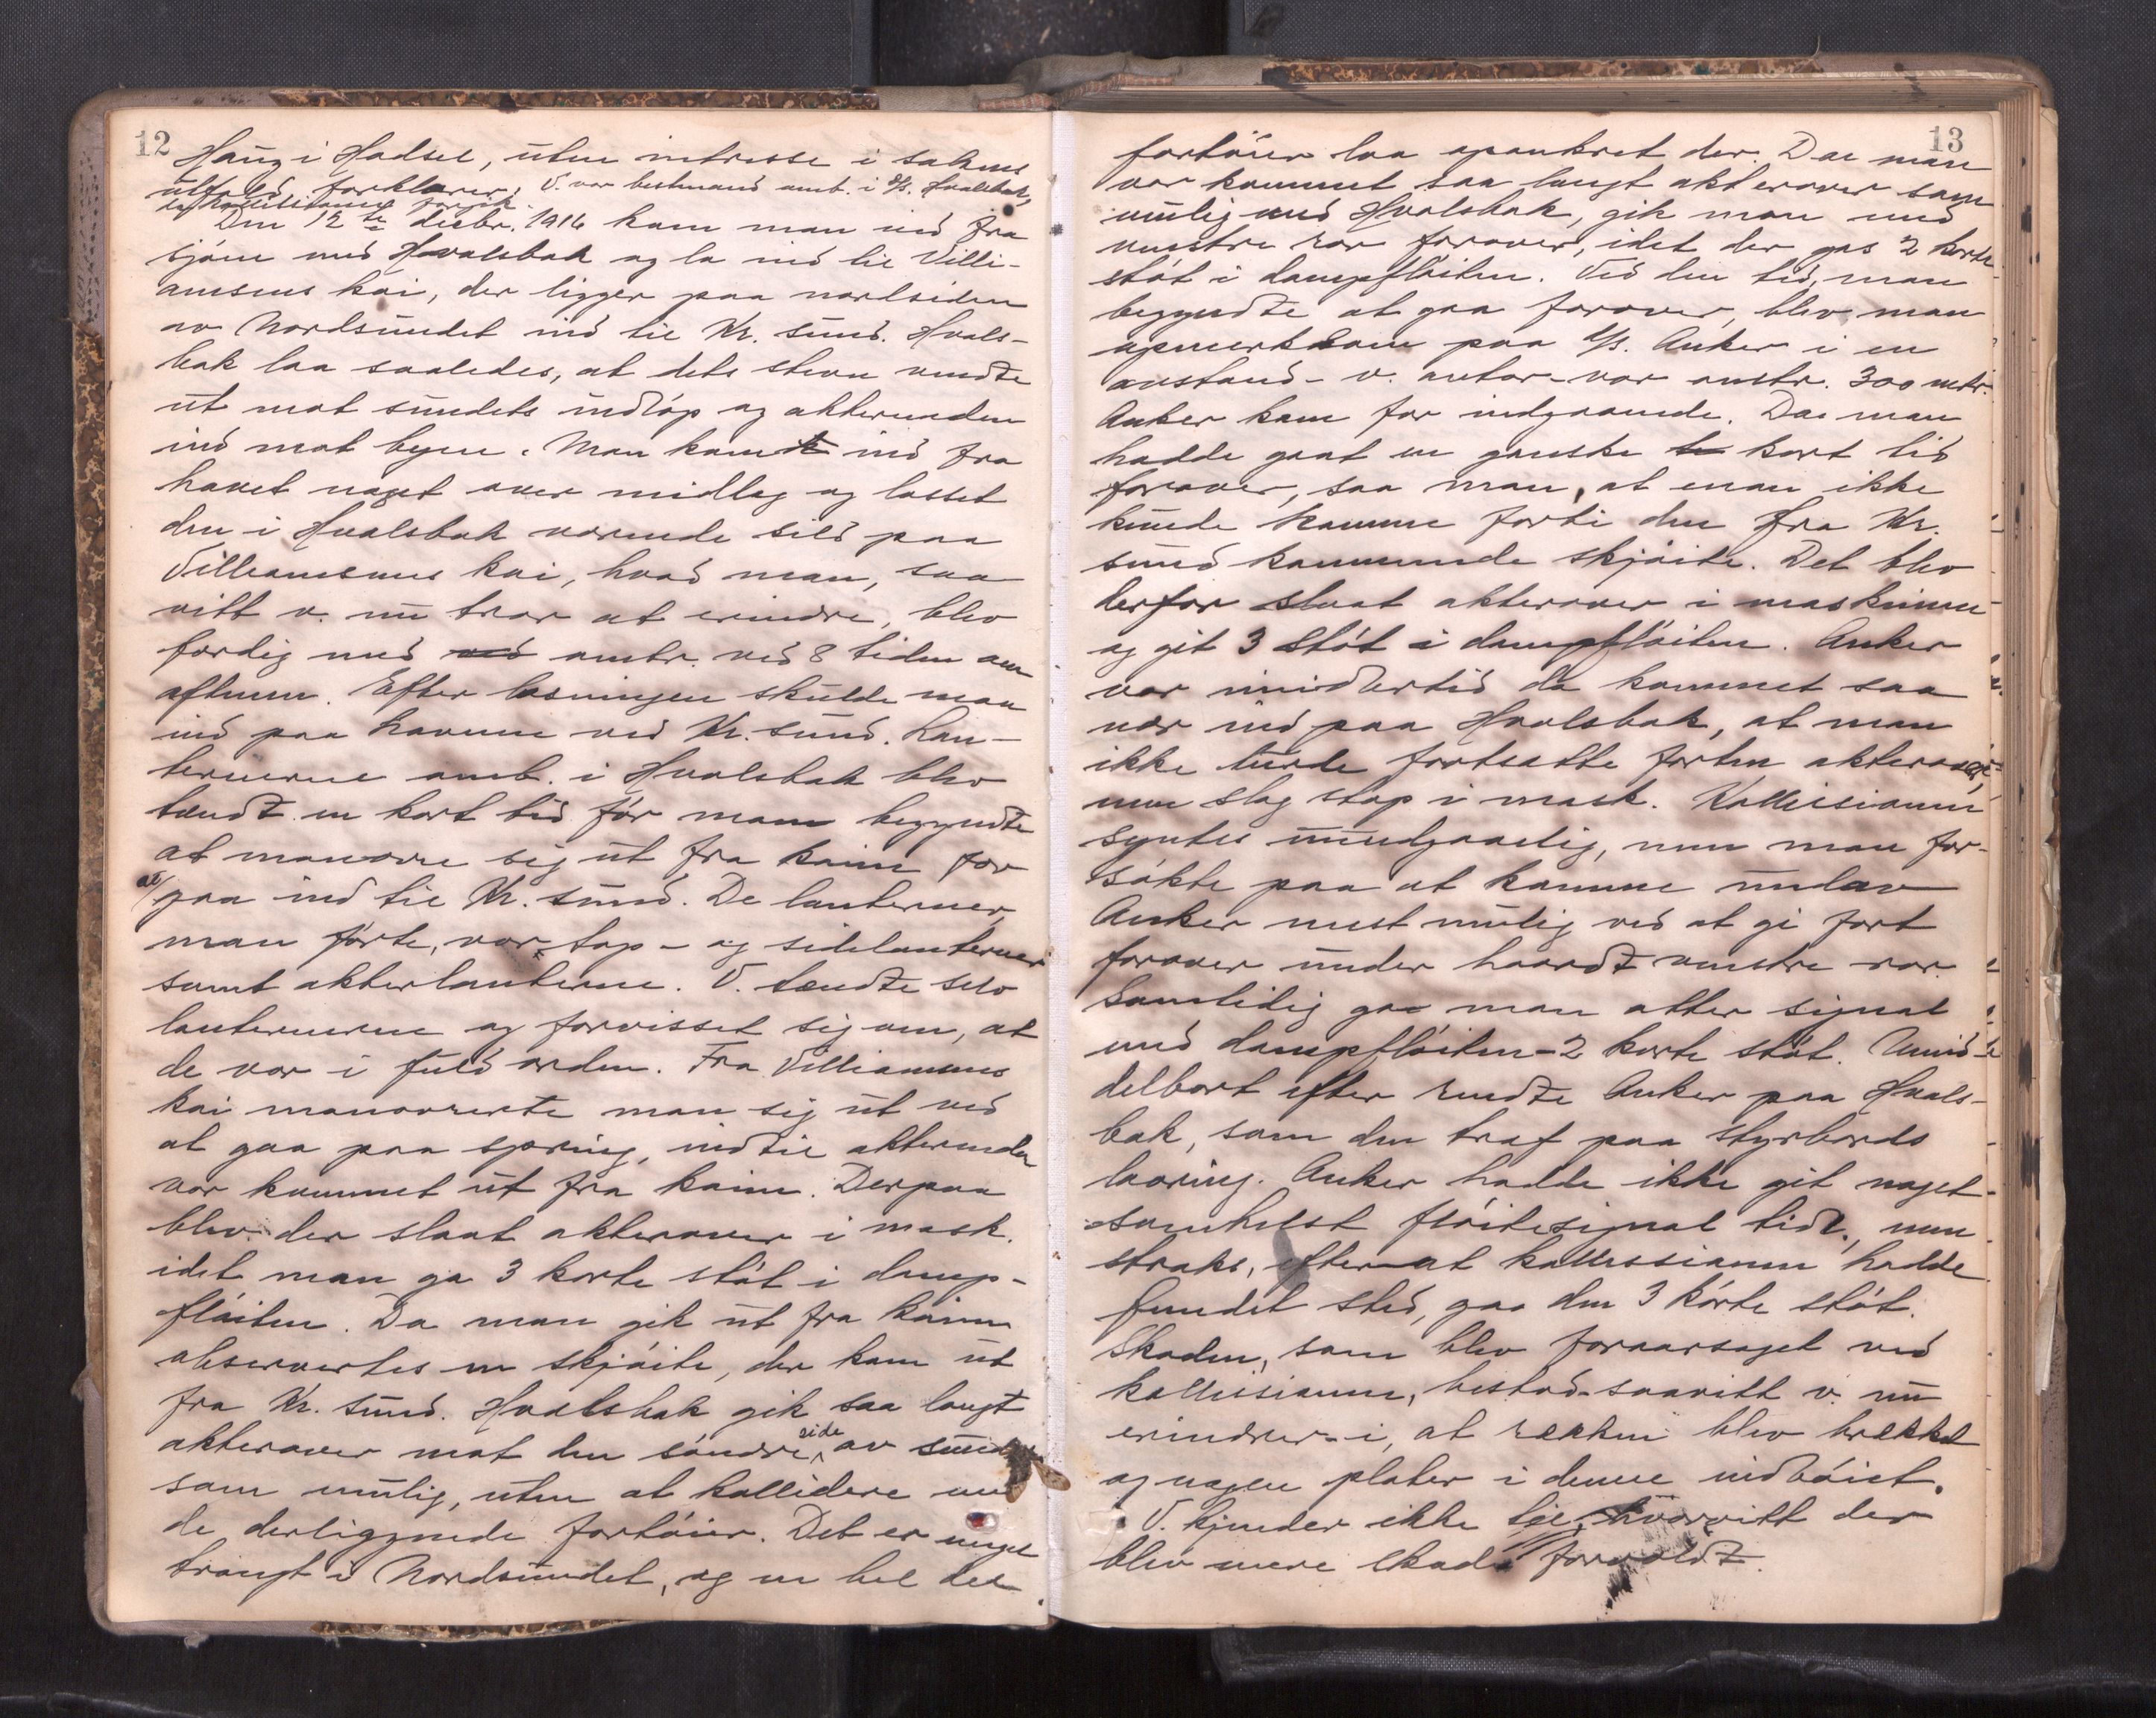 12
Haug i Hadsel, uten intresse i sakens
utfald, forklarer: V. var bestmand omb. i d/s. Hvalsbak,
da kollisionen foregik.
Den 12te decbr. 1916 kom man ind fra
sjøen med Hvalsbak og la ind til Villi-
amsens kai, der ligger paa nordsiden
av Nordsundet ind til Kr. sund. Hvals-
bak laa saaledes, at dets stevn vendte
ut mot sundets indløp og akterenden
ind mot byen. Man kom ind fra
havet noget over middag og losset
den i Hvalsbak værende sild paa
Villiamsens kai, hvad man, saa
vitt v. nu tror at erindre, blev
færdig med omtr. ved 8 tiden om
aftenen. Efter losningen skulde man
ind paa havnen ved Kr. sund. Lan-
ternerne omb. i Hvalsbak blev
tændt en kort tid før man begyndte
at manøvre sig ut fra kaien for
at gaa ind til Kr. sund. De lanterner,
man førte, var top- og sidelanterner
samt akterlanterne. V. tændte selv
lanternerne og forvisset sig om, at
de var i fuld orden. Fra Villiamsens
kai manøvrerte man sig ut ved
at gaa paa spring, indtil akterenden
var kommet ut fra kaien. Derpaa
blev der slaat akterover i mask.
idet man ga 3 korte støt i damp-
fløiten. Da man gik ut fra kaien
observertes en skjøite, der kom ut
fra Kr. sund. Hvalsbak gik saa langt
akterover mot den søndre side av
som mulig, uten at kollidere med
de derliggende fartøier. Det er meget
trangt i Nordsundet, og en hel del
13
fartøier laa opankret der. Da man
var kommet saa langt akterover som
mulig med Hvalsbak, gik man med
venstre ror forover, idet der gas 2 korte
støt i dampfløiten. Ved den tid, man
begyndte at gaa forover, blev man
opmerksom paa d/s. Anker i en
avstand - v. antar - var omtr. 300 mtr.
Anker kom for indgaaende. Da man
hadde gaat en ganske kort tid
forover, saa man, at man ikke
kunde komme forbi den fra Kr.
sund kommende skjøite. Det blev
derfor slaat akterover i maskinen
og git 3 støt i dampfløiten. Anker
var imidlertid da kommet saa
nær ind paa Hvalsbak, at man
ikke turde fortsætte farten akterover,
men slog stop i mask. Kollisionen
syntes uundgaaelig, men man for-
søkte paa at komme undav
Anker mest mulig ved at gi fart
forover under haardt venstre ror.
Samtidig ga man atter signal
med dampfløiten - 2 korte støt. Umid-
delbart efter rendte Anker paa Hvals-
bak, som den traf paa styrbords
laaring. Anker hadde ikke git noget-
somhelst fløitesignal tidl., men
straks, efterat kollissionen hadde
fundet sted, gav den 3 korte støt.
Skaden, som blev foraarsaget ved
kollisionen, bestod - saavitt v. nu
erindrer - i, at rækken blev brækket
og nogen plater i denne indbøiet.
V. kjender ikke til, hvorvitt der
blev mere skade forvoldt.